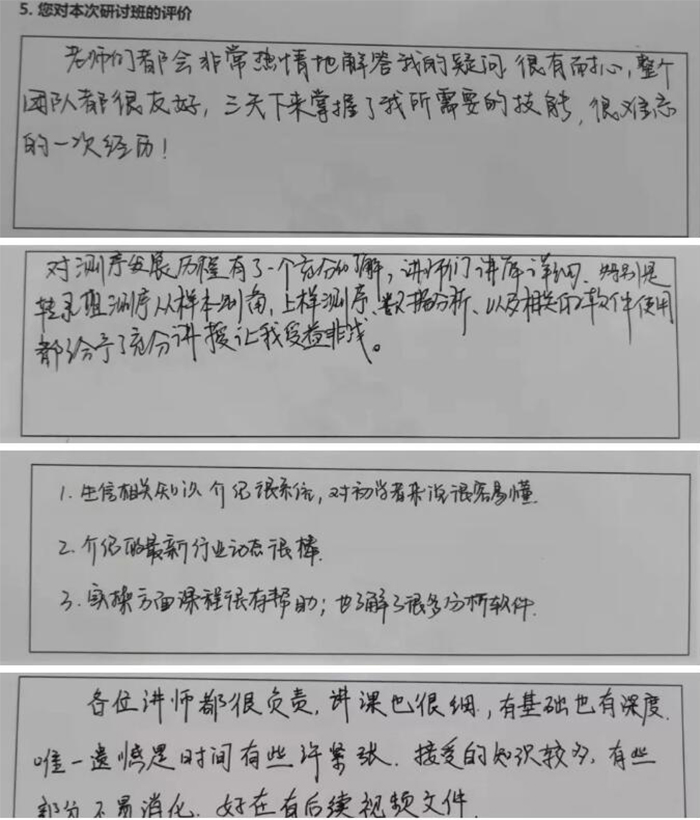 5. 您对本次研讨班的评价
老师们都会非常热情地解答我的疑问,很有耐心,整个
团队都很友好,三天下来掌握了我所需要的技能,很难忘
的一次经历!
对测序发展历程有了一个充分的了解,讲师们讲解详细.特别是
转录组测序从样本制备,上样测序、数据分析、以及相关的软件使用
都给予了充分讲授让我受益匪浅。
1. 生信相关知识介绍很系统,对初学者来说很容易懂.
2. 介绍的最新行业动态很棒.
3. 实操方面课程很有帮助;也了解了很多分析软件.
各位讲师都很负责,讲课也很细,有基础也有深度.
唯一遗憾是时间有些许紧张.接受的知识较多,有些
部分不易消化.好在有后续视频文件.